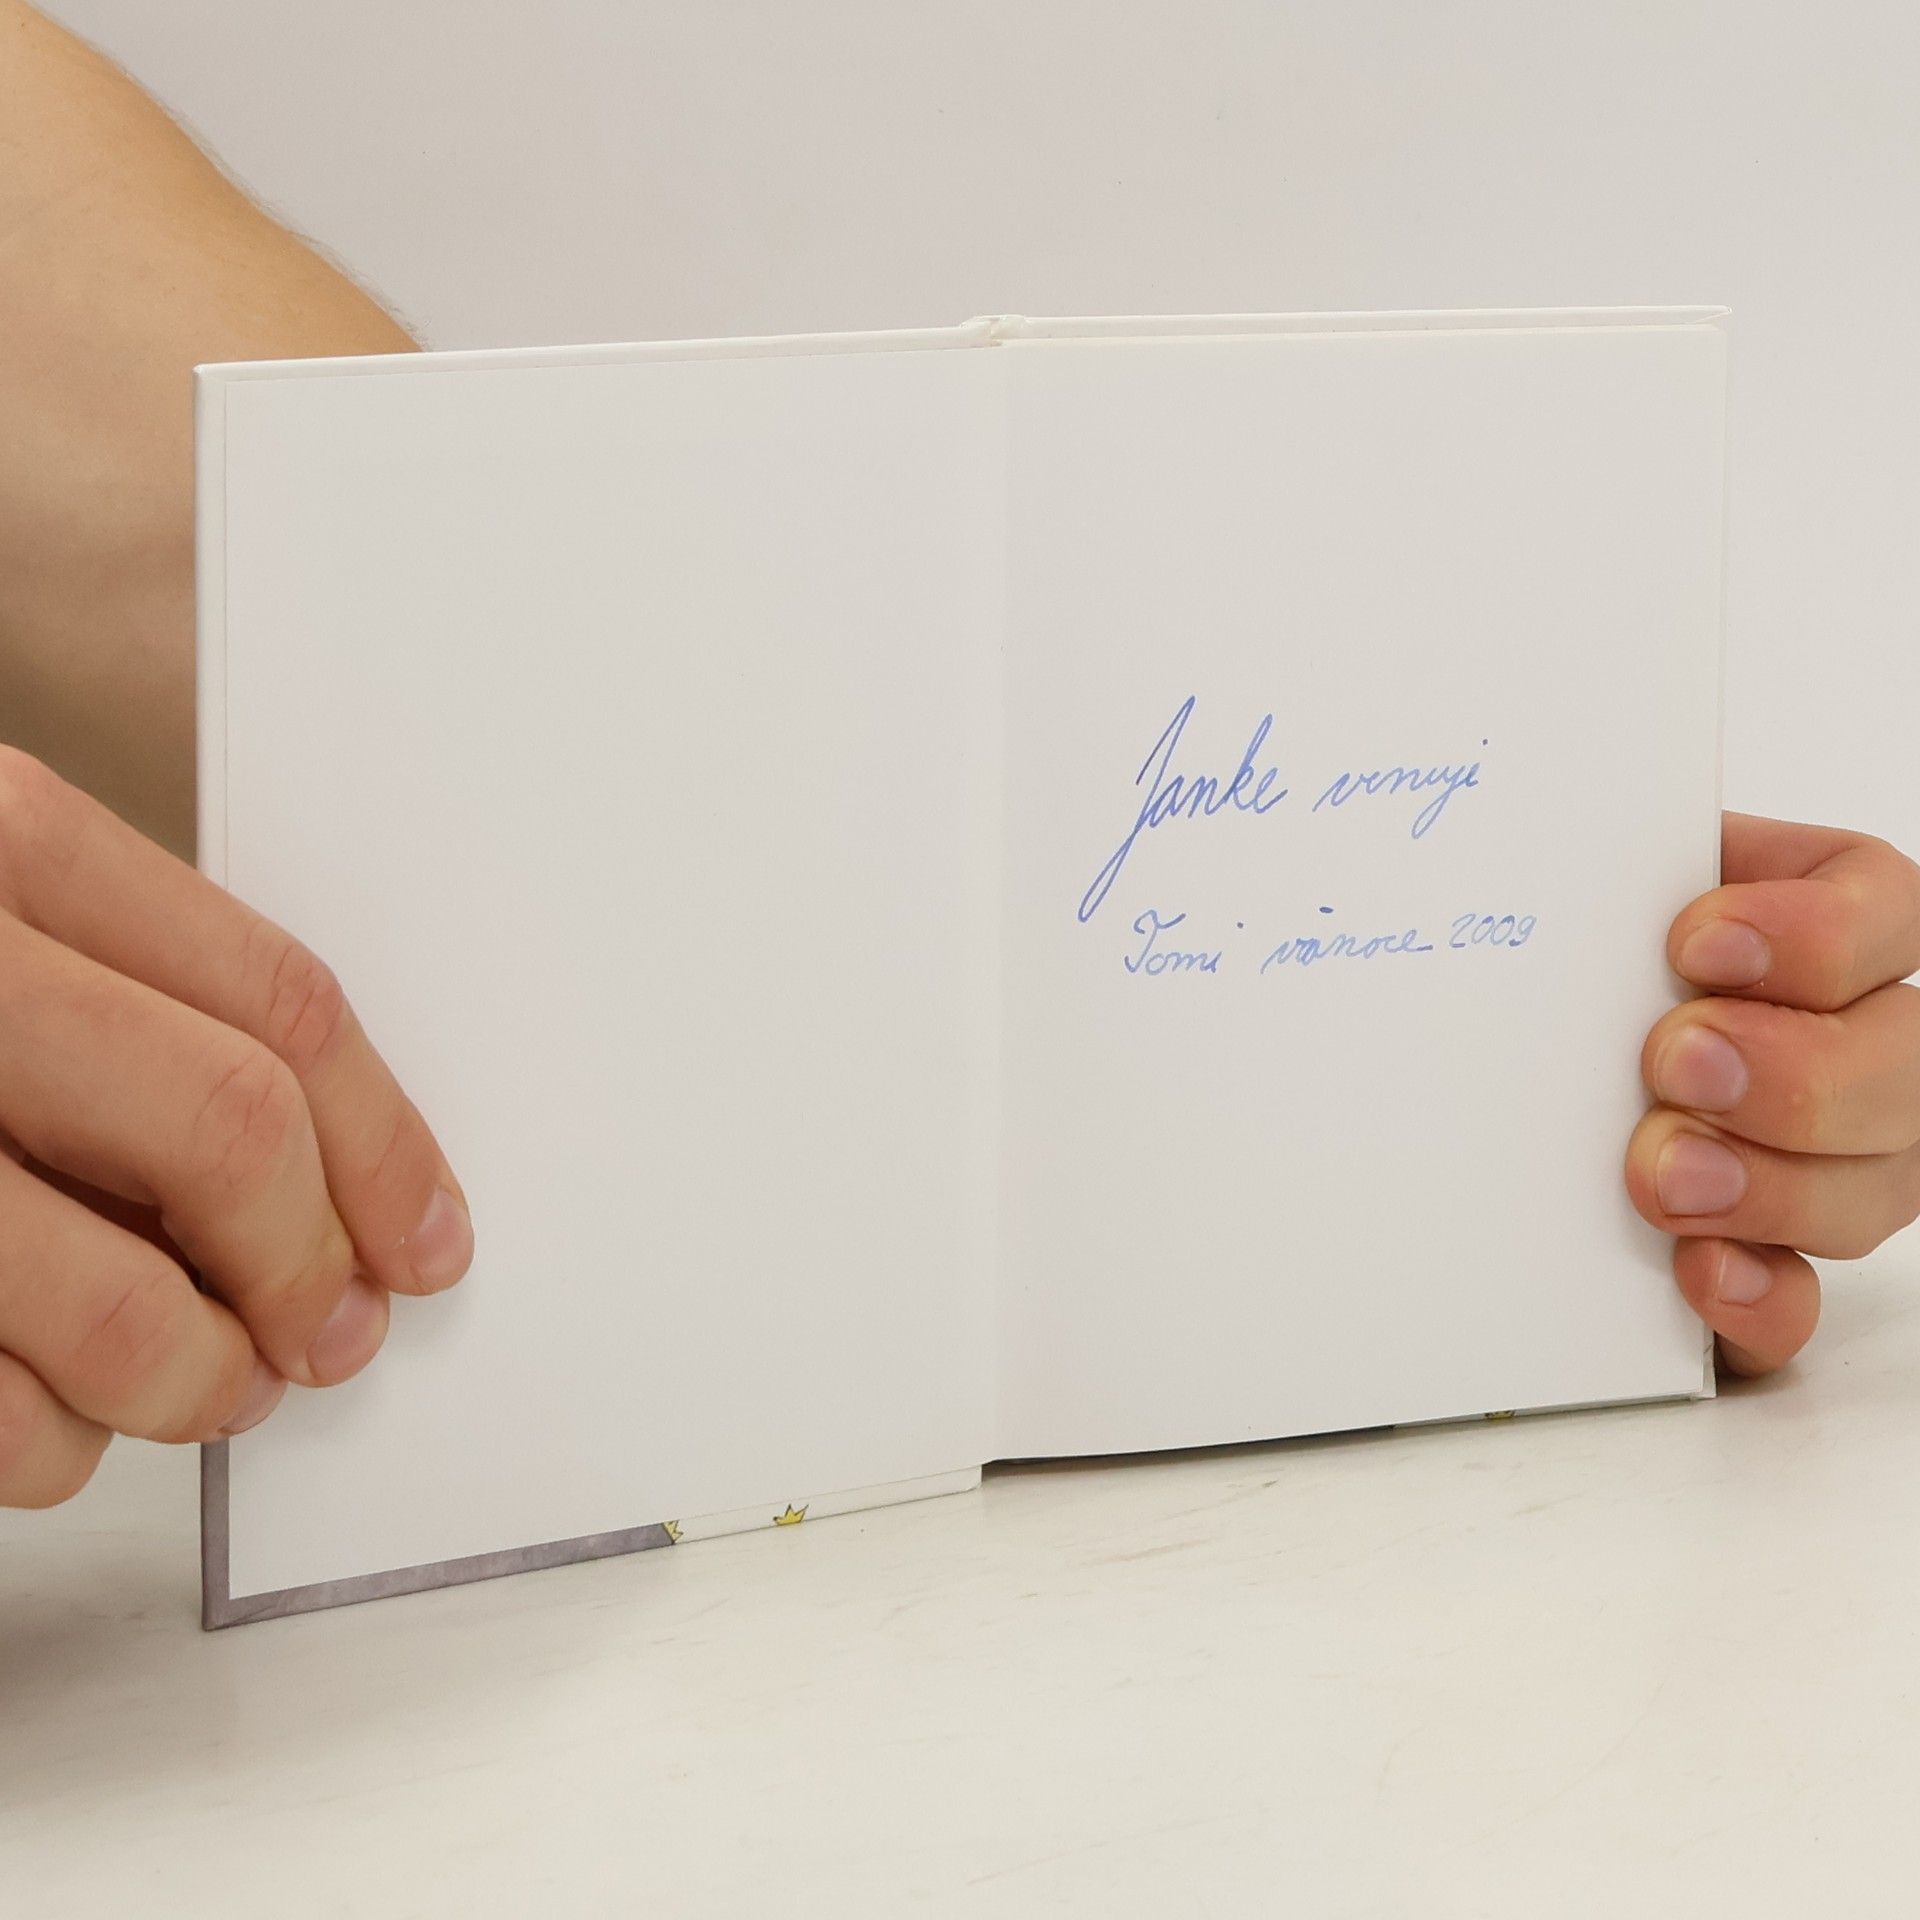 Janke venuji
Tomi vánoce 2009